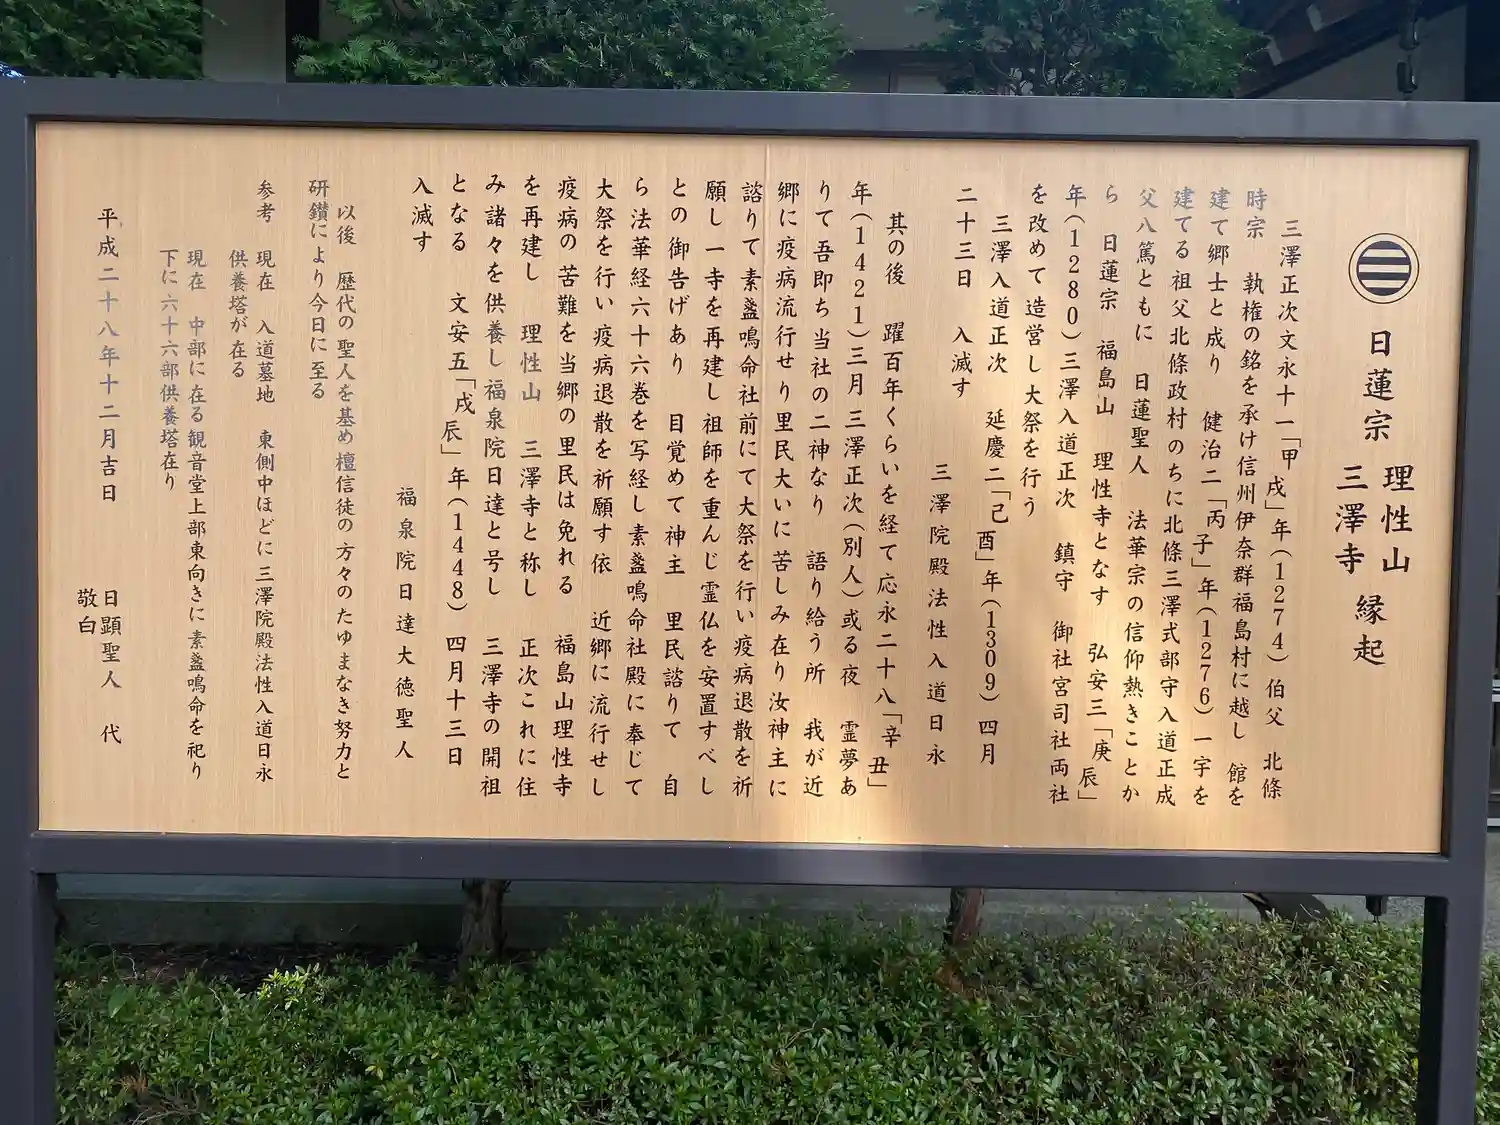 日蓮宗
理性山
三澤寺
縁起
三澤正次文永十一「甲戌」年(1274)伯父 北條
時宗 執権の銘を承け信州伊奈群福島村に越し 館を
建て郷士と成り 健治二「丙子」年(1276)一字を
建てる祖父北條政村のちに北條三澤式部守入道正成
父八篤ともに 日蓮聖人 法華宗の信仰熱きことか
ら 日蓮宗 福島山 理性寺となす 弘安三「庚辰」
年(1280)三澤入道正次 鎮守 御社宮司社両社
を改めて造営し大祭を行う
三澤入道正次 延慶二「己酉」年(1309)四月
二十三日 入滅す
三澤院殿法性入道日永
其の後 躍百年くらいを経て応永二十八「辛丑」
年(1421)三月三澤正次(別人)或る夜 霊夢あ
りて吾即ち当社の二神なり 語り給う所 我が近
郷に疫病流行せり里民大いに苦しみ在り汝神主に
諮りて素盞鳴命社前にて大祭を行い疫病退散を祈
願し一寺を再建し祖師を重んじ霊仏を安置すべし
との御告げあり 目覚めて神主 里民諮りて 自
ら法華経六十六巻を写経し素盞鳴命社殿に奉じて
大祭を行い疫病退散を祈願す依 近郷に流行せし
疫病の苦難を当郷の里民は免れる 福島山理性寺
を再建し 理性山 三澤寺と称し 正次これに住
み諸々を供養し福泉院日達と号し 三澤寺の開祖
となる 文安五「戌辰」年(1448)四月十三日
入滅す
福泉院日達大徳聖人
以後 歴代の聖人を基め檀信徒の方々のたゆまなき努力と
研鑽により今日に至る
参考 現在 入道墓地 東側中ほどに三澤院殿法性入道日永
供養塔が在る
現在 中部に在る観音堂上部東向きに素盞鳴命を祀り
下に六十六部供養塔在り
平成二十八年十二月吉日
日顕聖人 代
敬白